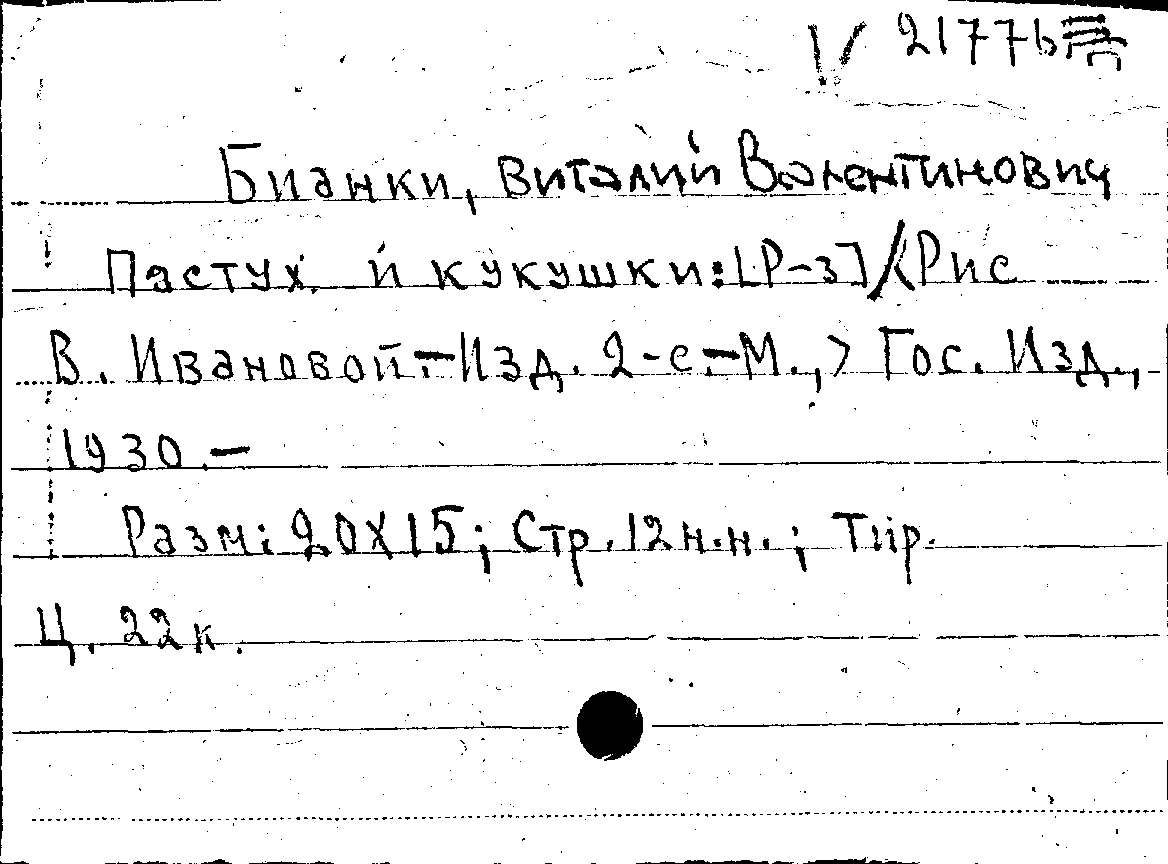 V 21776
Бианки, Виталий Валентинович
Пастух и кукушки: [Р-з] / (Рис
В. Ивановой.-Изд. 2-е.-М., Гос. Изд.,
1930.-
Разм: 20X15; Стр. 12 н.н.; Тир.
Ц. 22к.